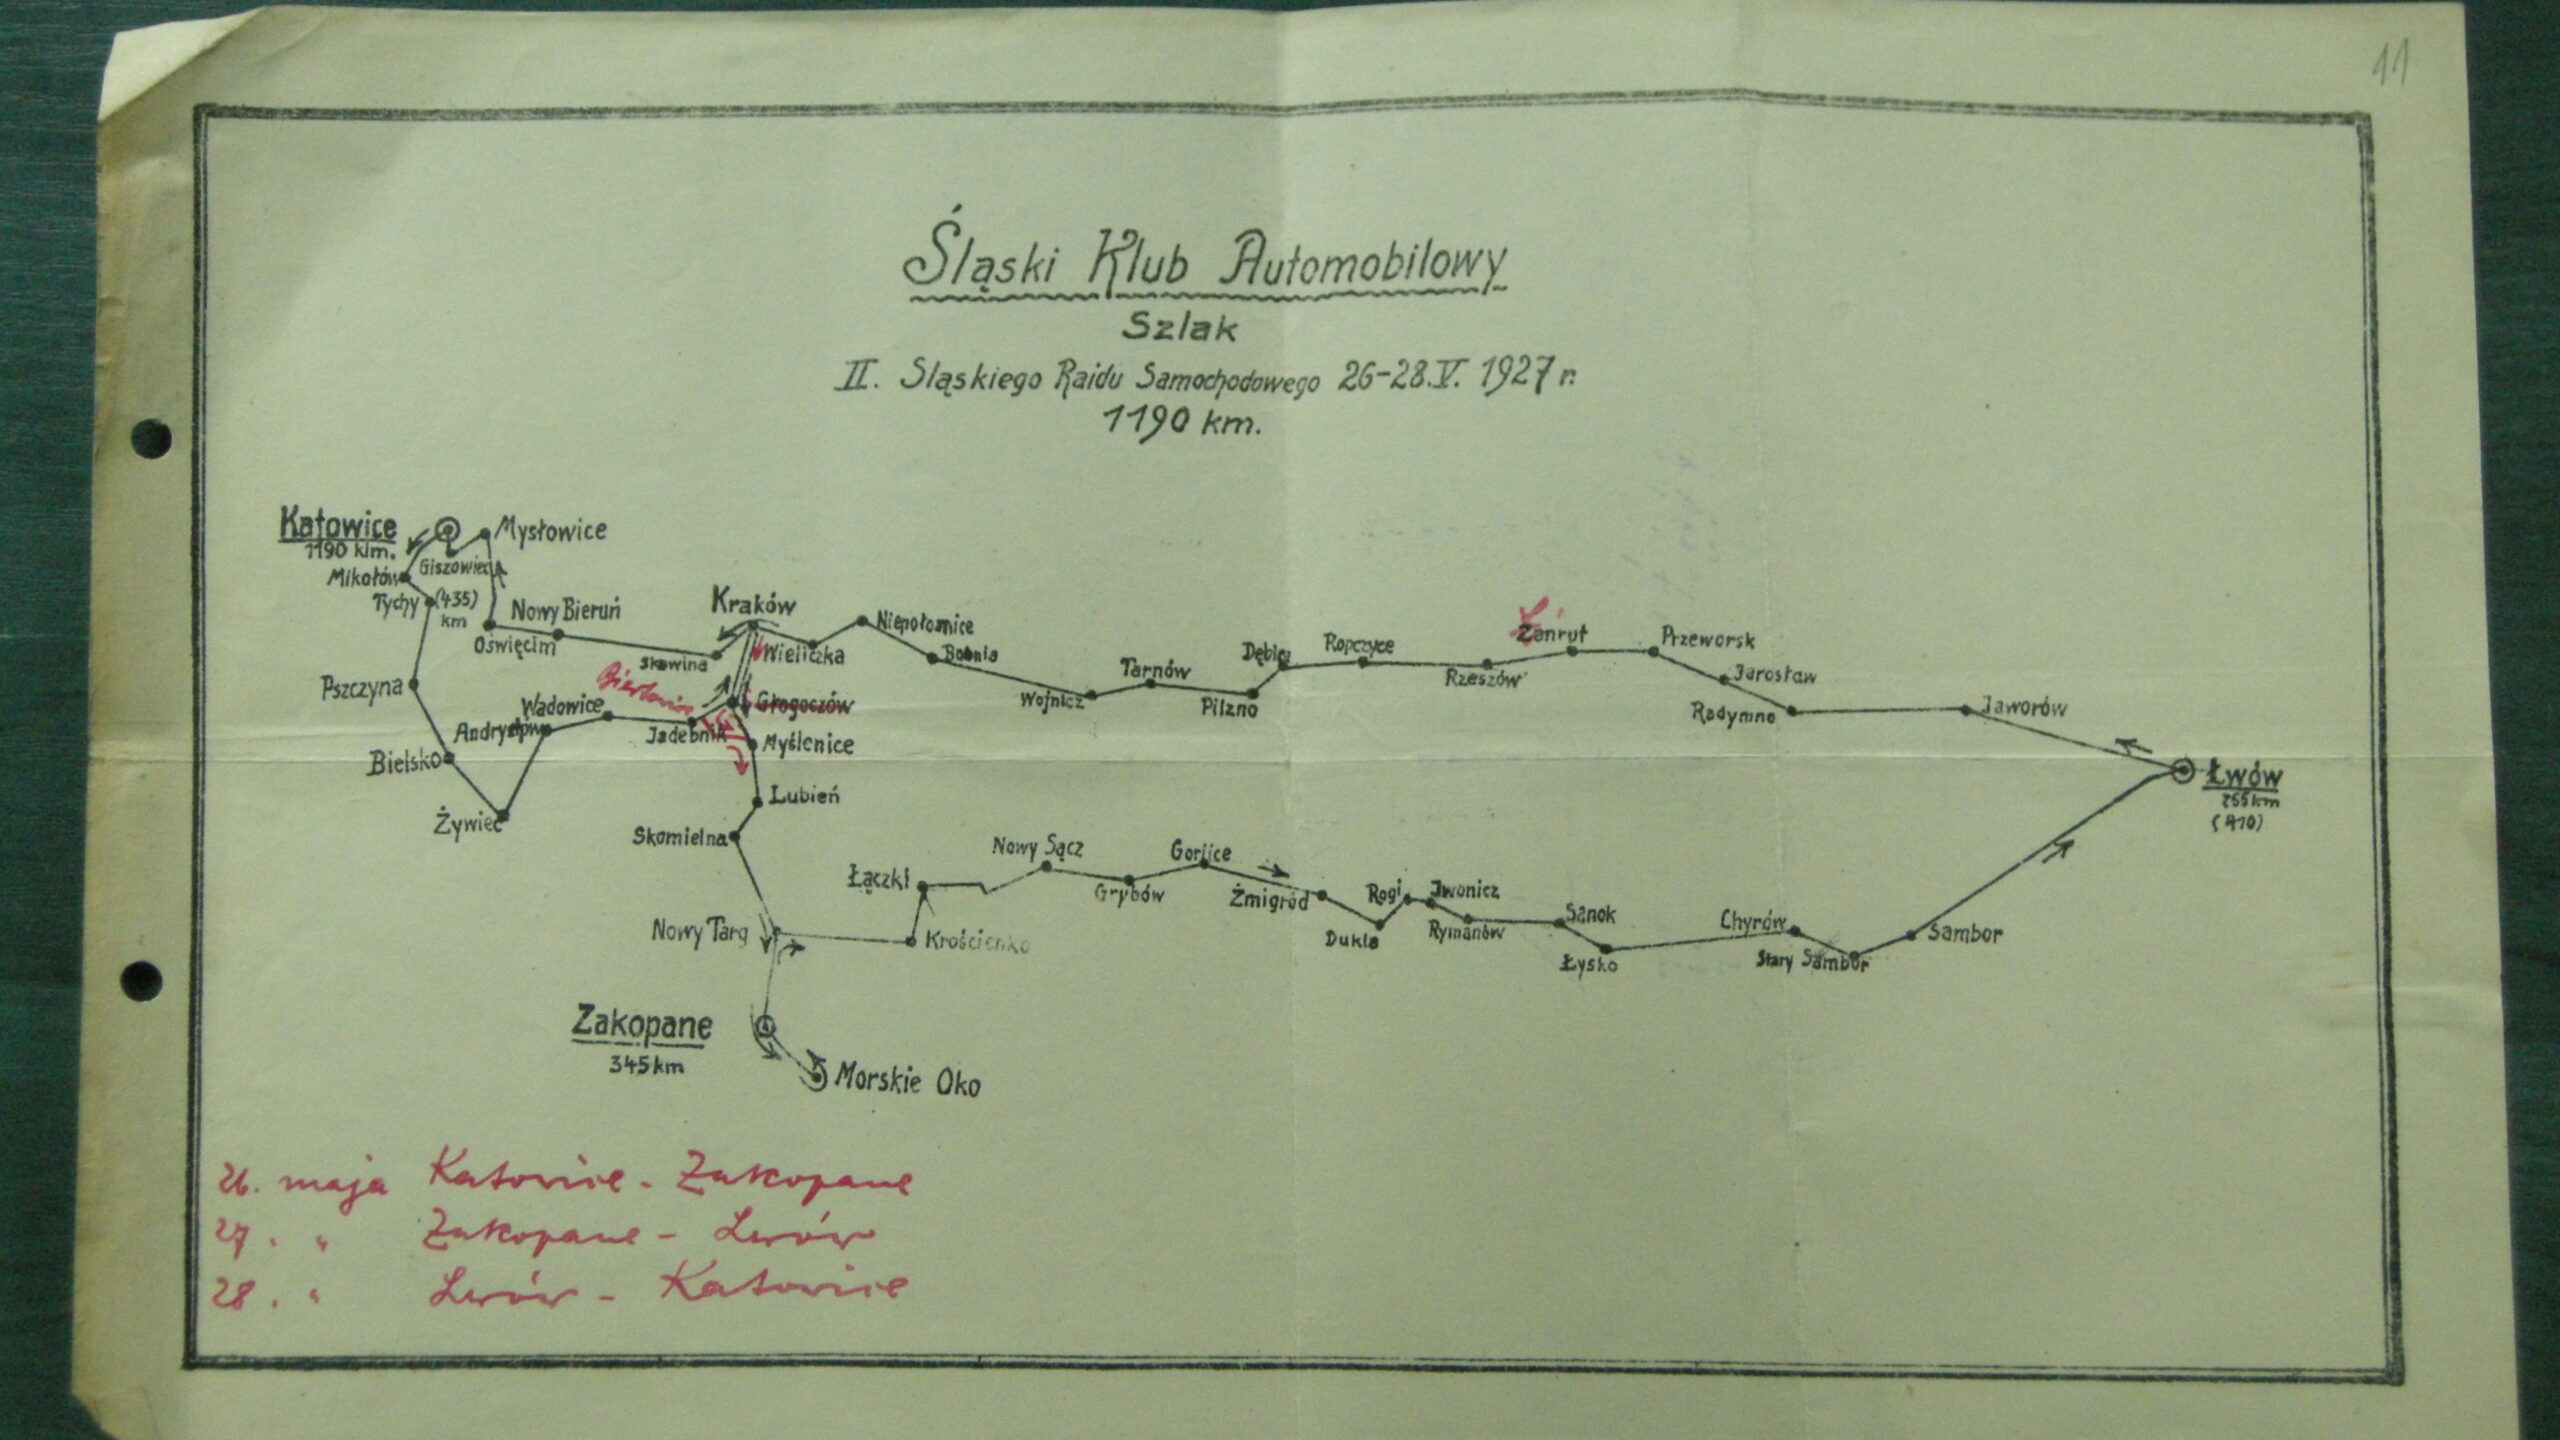 11
Śląski Klub Automobilowy
Szlak
II. Sląskiego Raidu Samochodowego 26-28.V. 1927 r.
1190 km.
Katowice
1190 klm.
Mysłowice
Giszowiec
Mikołów
Tychy
(435)
km
Nowy Bieruń
Oświęcim
Skawina
Kraków
Wieliczka
Niepołomice
Bochnia
Wojnicz
Tarnów
Pilzno
Dębica
Ropczyce
Rzeszów
Ł
Żańcut
Przeworsk
Jarosław
Radymno
Jaworów
Łwów
255 km
(410)
Pszczyna
Bielsko
Żywiec
Andrychów
Wadowice
Jadebnik
Głogoczów
Myślenice
Lubień
Skomielna
Nowy Targ
Krościenko
Łączki
Nowy Sącz
Grybów
Gorlice
Żmigród
Dukla
Rogi
Jwonicz
Rymanów
Sanok
Łysko
Chyrów
Stary Sambor
Sambor
Zakopane
345 km
Morskie Oko
26. maja Katowice - Zakopane
27. " Zakopane - Lwów
28. " Lwów - Katowice